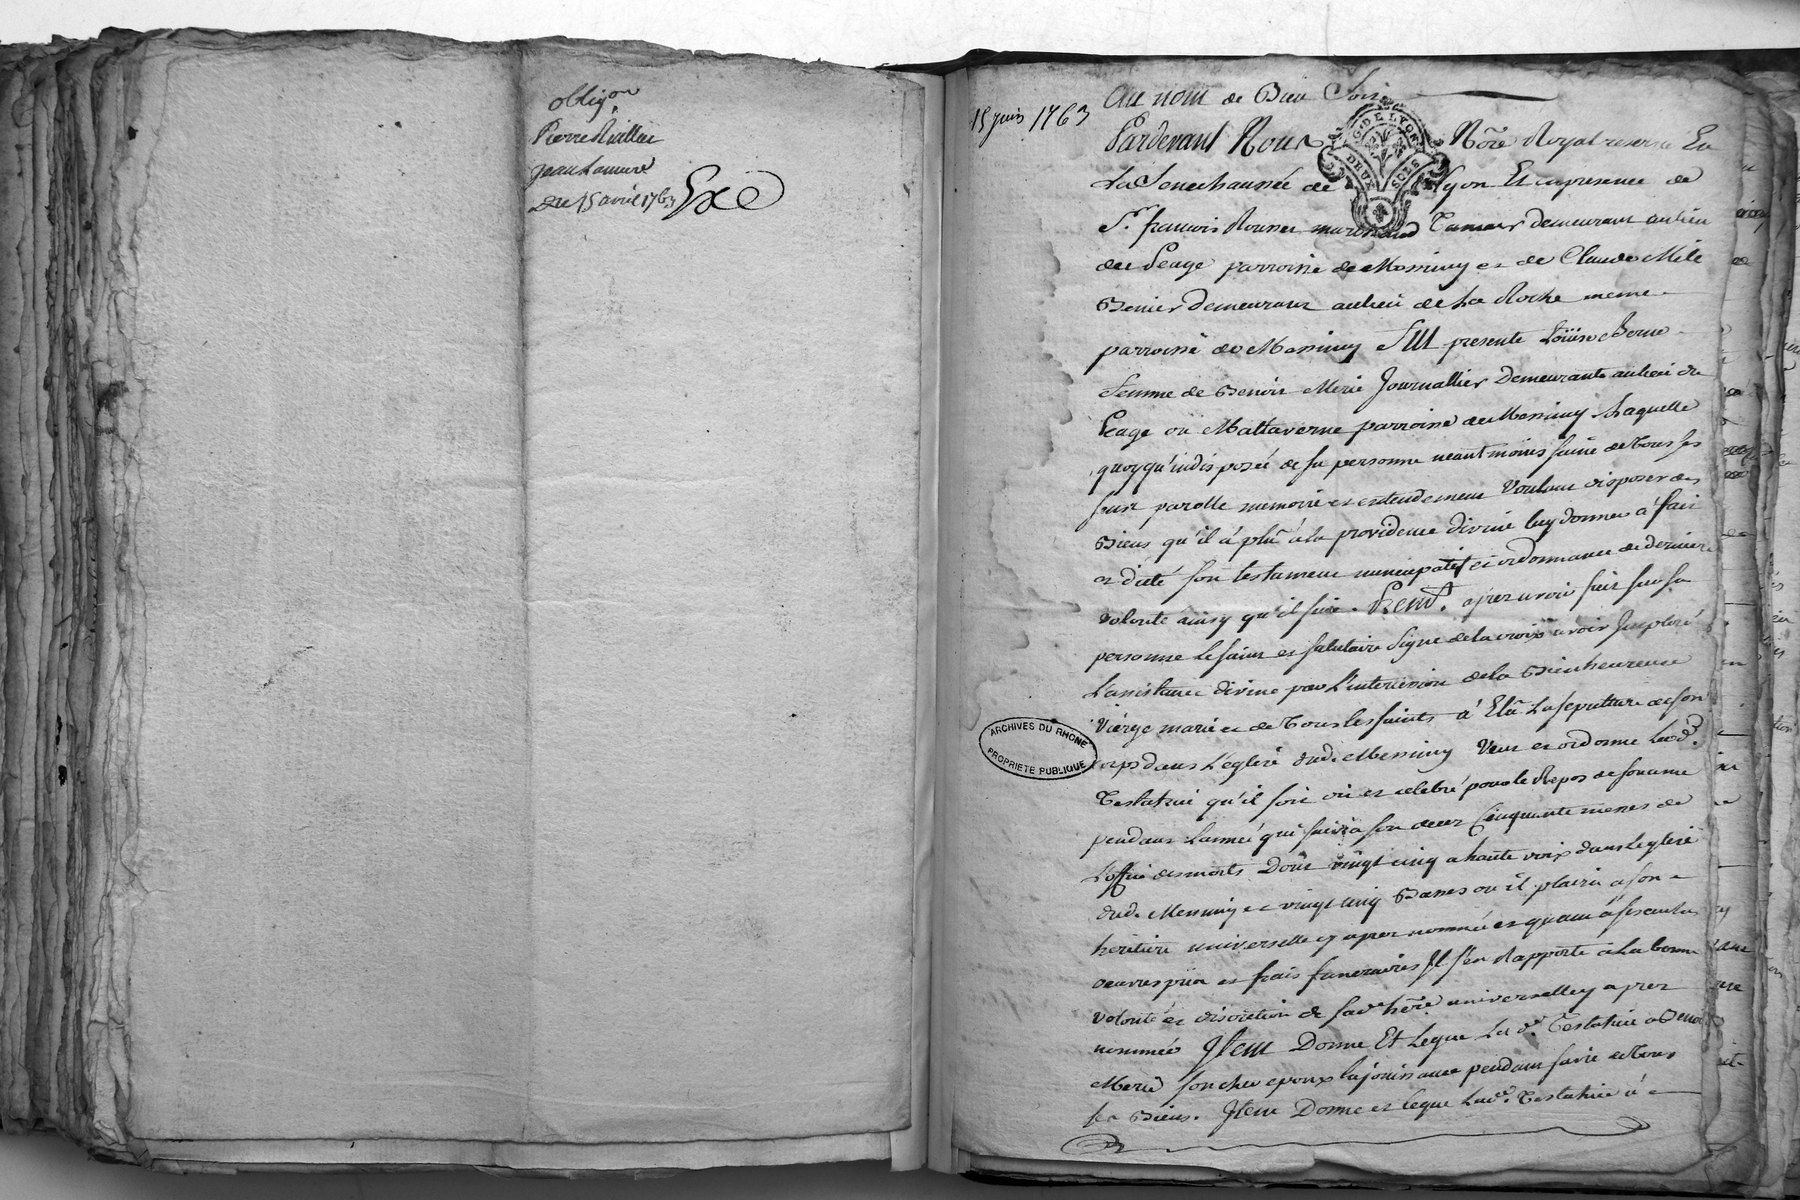 obligon
Pierre Raillier
Jean
Du 15 avril 1763
15 juin 1763
Au nom de Dieu Soit
Pardevant Nous Nore Royal reservé En
La Senechaussée de Lyon Et en presence de
G. DE LYON
DEUX SOLS
Sr. francois marchand Taneur demeurant au lieu
du Peage parroisse de Messimy et de Claude
demeurant au lieu de La Roche meme
parroisse de Messimy fut presente Loüise
femme de Benoit Merié Journallier Demeurante au lieu du
Peage ou Mallaverne parroisse de Messimy Laquelle
quoyqu'indisposée de sa personne neantmoins saine de Tous ses
sens parolle memoire et entendement Voulant disposer des
Biens qu'il à plû à la providence divine luy donner à fait
et dicté son testament nuncupatif et ordonnance de derniere
volonté ainsy qu'il suit. Premt. apres avoir fait sur sa
personne Le saint et salutaire signe de la croix avoir Imploré
L'assistance divine par L'intercession de la Bienheureuse
Vierge marie et de Tous les saints à Elû La sepulture de son
corps dans L'eglise dud. Messimy Veut et ordonne Lad.
Testatrice qu'il soit dit et celebré pour le Repos de son ame
pendant L'année qui suivra son decez Cinquante messes de
L'office des morts Dont vingt cinq a haute voix dans L'eglise
dud. Messimy et vingt cinq Basses ou il plaira a son
heritiere universelle cy apres nommée et quant à ses autres
oeuvres pies et frais funeraires Il s'en Rapporte à La bonne
volonté et discretion de sad. here universelle cy apres
nommée Item Donne Et Legue Lad. Testatrice a Benoit
Merié son cher epoux la jouissance pendant sa vie de Tous
ses Biens. Item Donne et Legue Lad. Testatrice à
ARCHIVES DU RHONE
PROPRIETE PUBLIQUE